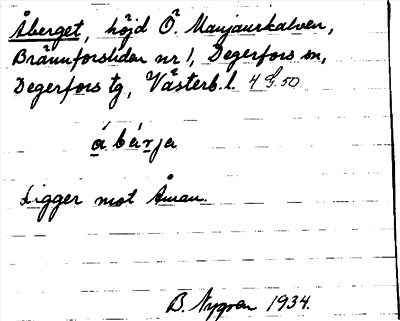 Åberget, höjd Ö. Manjaurkälven,
Brännforsliden nr 1, Degerfors sn,
Degerfors tg, Västerb. l.
åbärja
Ligger mot Åman.
B. Nygren 1934.